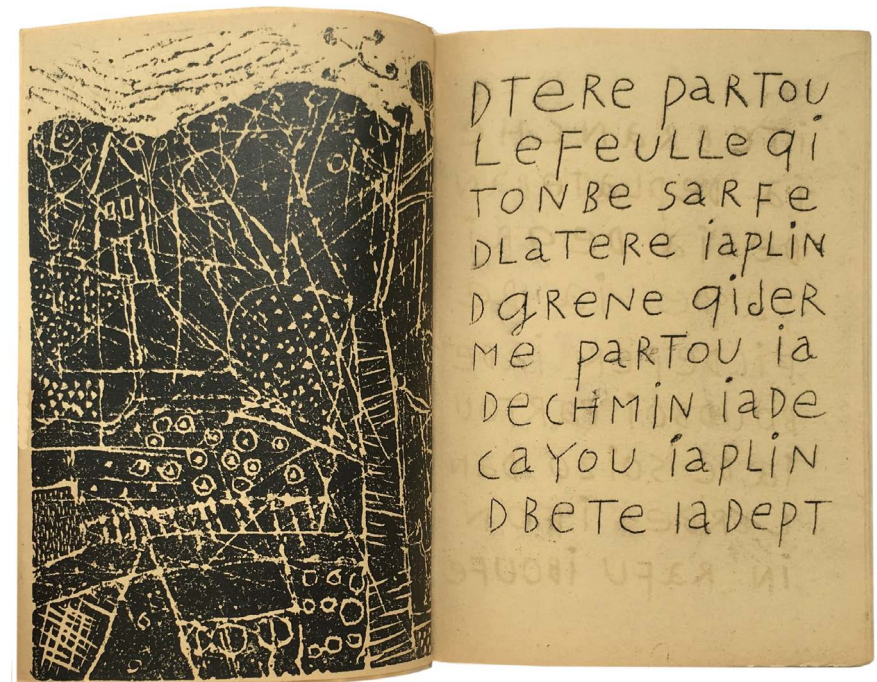 DTeRe paRTOU
LeFeULLe qi
TONBe saRFe
DLaTeRe iapLiN
DgReNe qideR
Me paRTOU ia
DeCHMiN iaDe
CaYOU iapLiN
DBeTe iaDepT